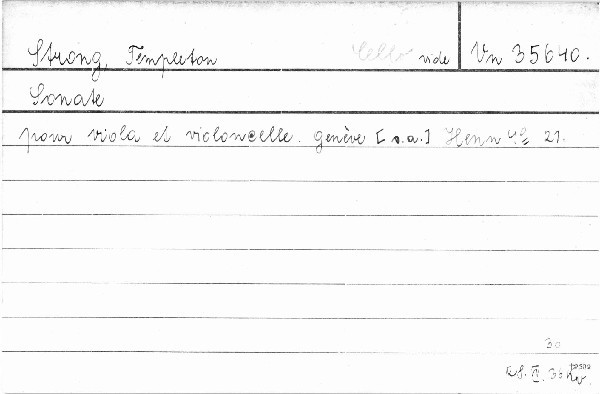 Strong, Templeton 'Cello vide Vn 35640.
Sonate
pour viola et violoncelle. Genève [s.a.] Henn 4º 21.
30